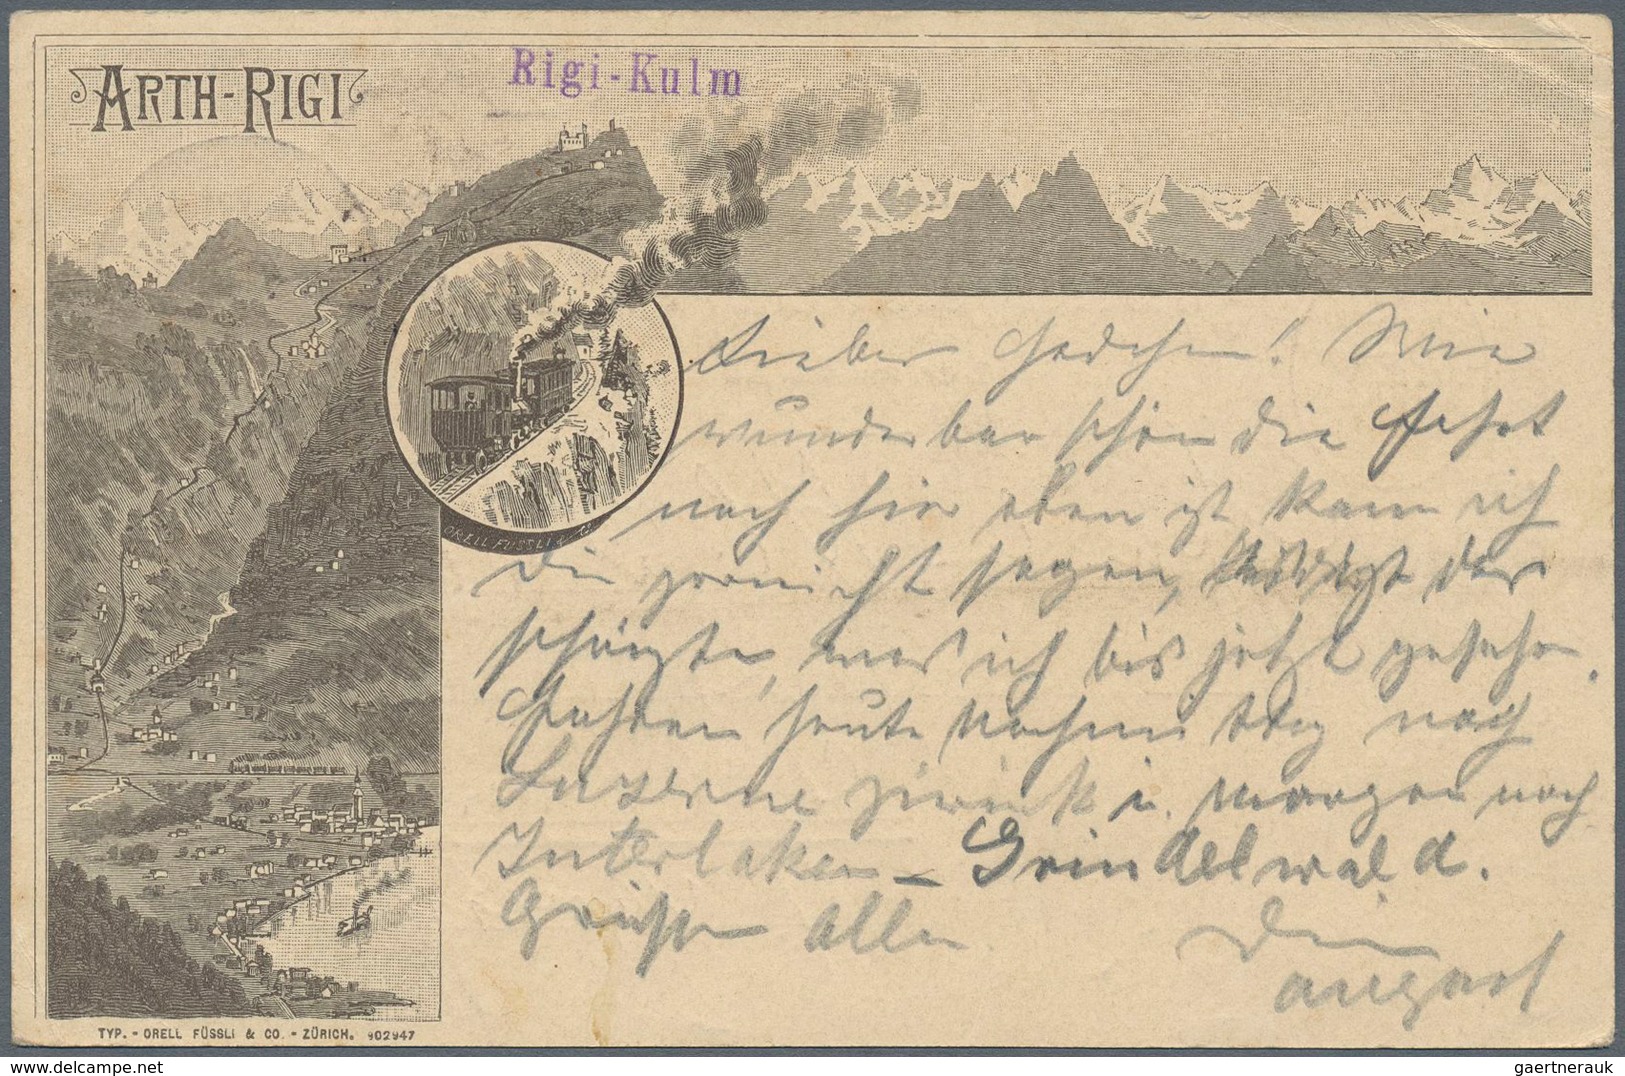 ARTH-RIGI
Rigi-Kulm
ORELL FÜSSLI & Co
Lieber! Wie
wunderbar schön die Fahrt
nach hier oben ist kann ich
Dir garnicht sagen, das
schönste, was ich bis jetzt gesehen.
Fahren heute Nachmittag nach
Luzern zurück u. morgen nach
Interlaken – Grindelwald.
Grüsse Alle
Dein
August
TYP. - ORELL FÜSSLI & CO. - ZÜRICH. 902947
gaertnerauk / delcampe.net